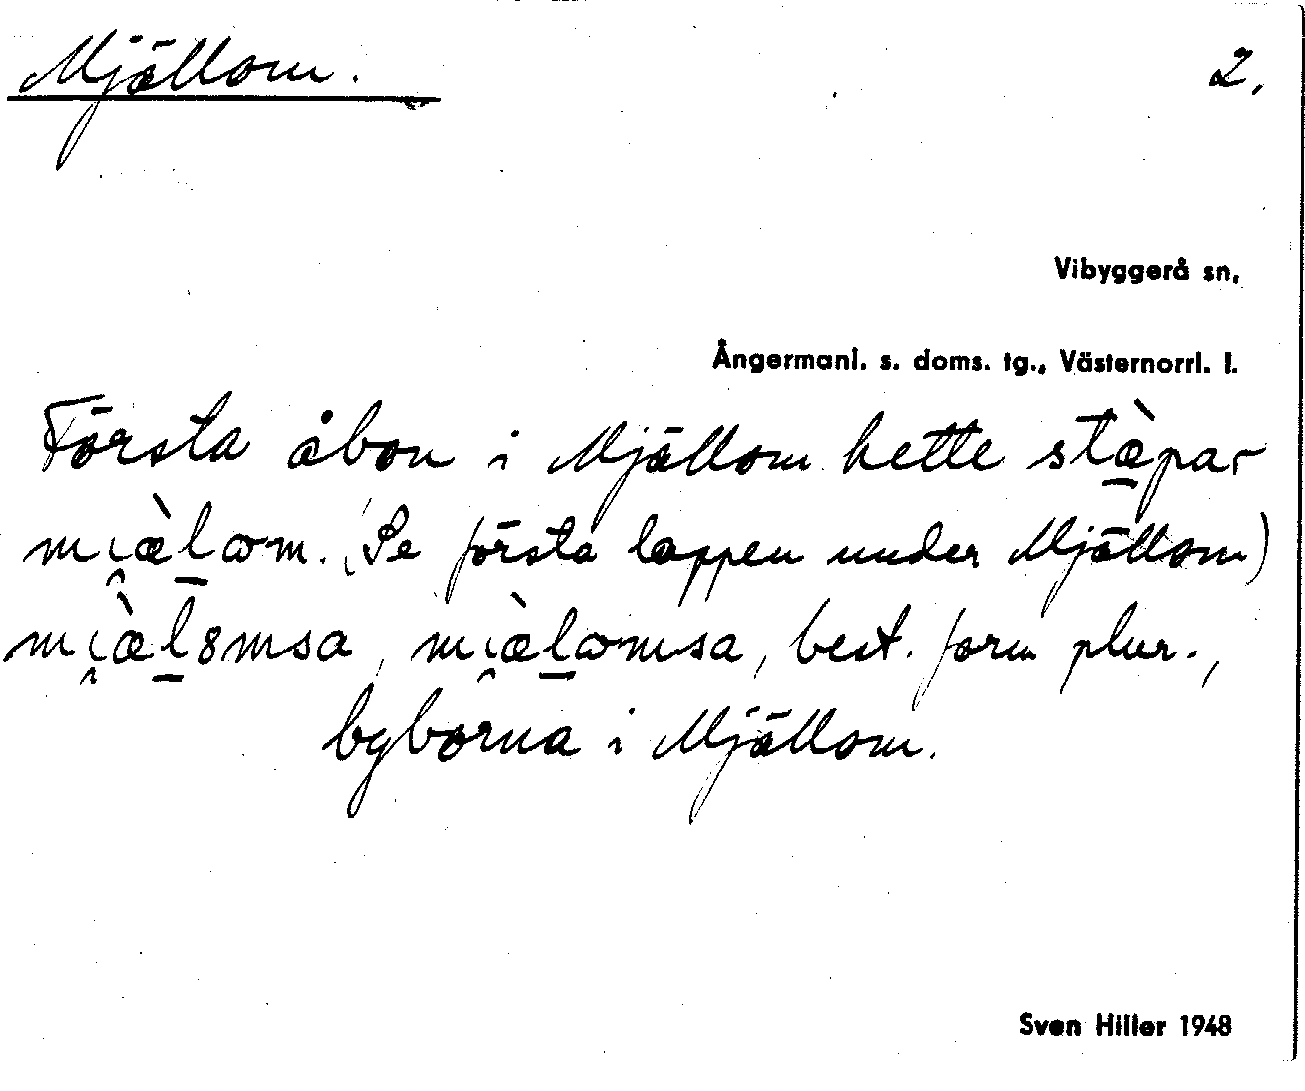 Mjällom. 2.
Vibyggerå sn.
Ångermanl. s. doms. tg., Västernorrl. l.
Första åbon i Mjällom hette stæ̀par
mi̯æ̀lωm. (Se första lappen under Mjällom)
mi̯æ̀l8msa, mi̯æ̀lωmsa, best. form plur.,
byborna i Mjällom.
Sven Hiller 1948